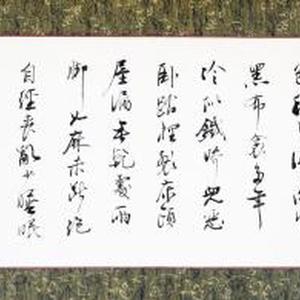 黑布衾多年
冷似鐵嬌兒惡
臥踏裡裂床頭
屋漏無乾處雨
脚如麻未斷絕
自經喪亂少睡眠